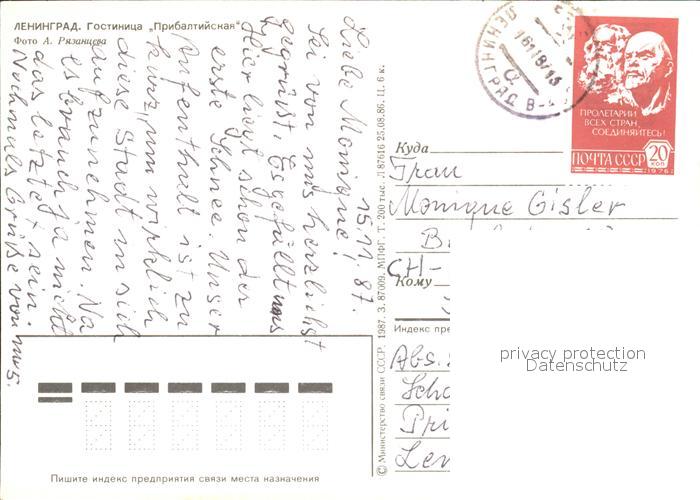 ЛЕНИНГРАД. Гостиница „Прибалтийская“
Фото А. Рязанцева
15.11.87.
Liebe Monique!
Sei von mir herzlichst
gegrüßt. Es gefällt uns
Hier liegt schon der
erste Schnee. Unser
Aufenthalt ist zu
kurz, um wirklich
diese Stadt in sich
aufzunehmen. Na
es brauch ja nicht
das letzte sein.
Nochmals Grüße von uns.
© Министерство связи СССР. 1987. З. 87009. МПФГ. Т. 200 тыс. Л 87616 25.08.86. Ц. 6 к.
ЛЕНИНГРАД
ПРОЛЕТАРИИ
ВСЕХ СТРАН,
СОЕДИНЯЙТЕСЬ!
ПОЧТА СССР 20 КОП
1976
Куда
Frau
Monique Gisler
CH-
Кому
Индекс пре
Abs.
Scho
Pri
Len
privacy protection
Datenschutz
Пишите индекс предприятия связи места назначения